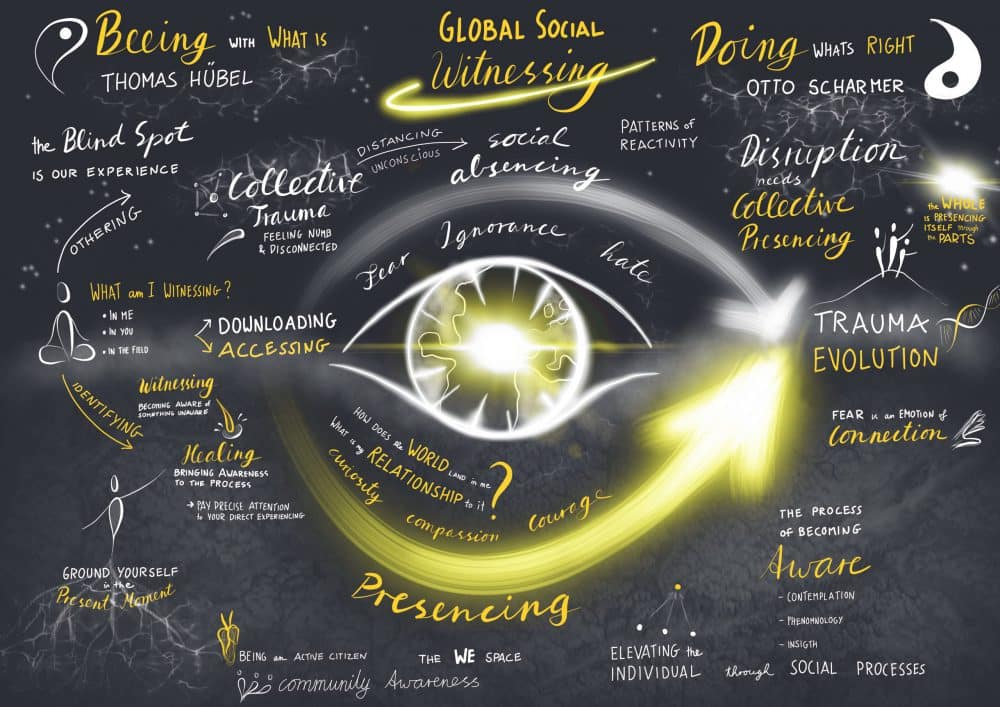 Beeing WITH WHAT IS
THOMAS HÜBEL
GLOBAL SOCIAL
Witnessing
Doing WHATS RIGHT
OTTO SCHARMER
the Blind Spot
IS OUR EXPERIENCE
OTHERING
Collective
Trauma
FEELING NUMB
& DISCONNECTED
DISTANCING
UNCONSCIOUS
social
absencing
PATTERNS of
REACTIVITY
Disruption
needs
Collective
Presencing
the WHOLE
IS PRESENCING
ITSELF through
the PARTS
Fear
Ignorance
hate
WHAT am I WITNESSING?
• IN ME
• IN YOU
• IN THE FIELD
DOWNLOADING
ACCESSING
TRAUMA
EVOLUTION
IDENTIFYING
Witnessing
BECOMING AWARE of
SOMETHING UNAWARE
Healing
BRINGING AWARENESS
TO THE PROCESS
→ PAY PRECISE ATTENTION
to YOUR DIRECT EXPERIENCING
HOW DOES the WORLD LAND in me
WHAT is my RELATIONSHIP to it ?
curiosity
compassion
courage
Presencing
FEAR is an EMOTION of
Connection
THE PROCESS
OF BECOMING
Aware
- CONTEMPLATION
- PHENOMNOLOGY
- INSIGTH
GROUND YOURSELF
in the
Present Moment
BEING an ACTIVE CITIZEN
community Awareness
THE WE SPACE
ELEVATING the
INDIVIDUAL through SOCIAL PROCESSES